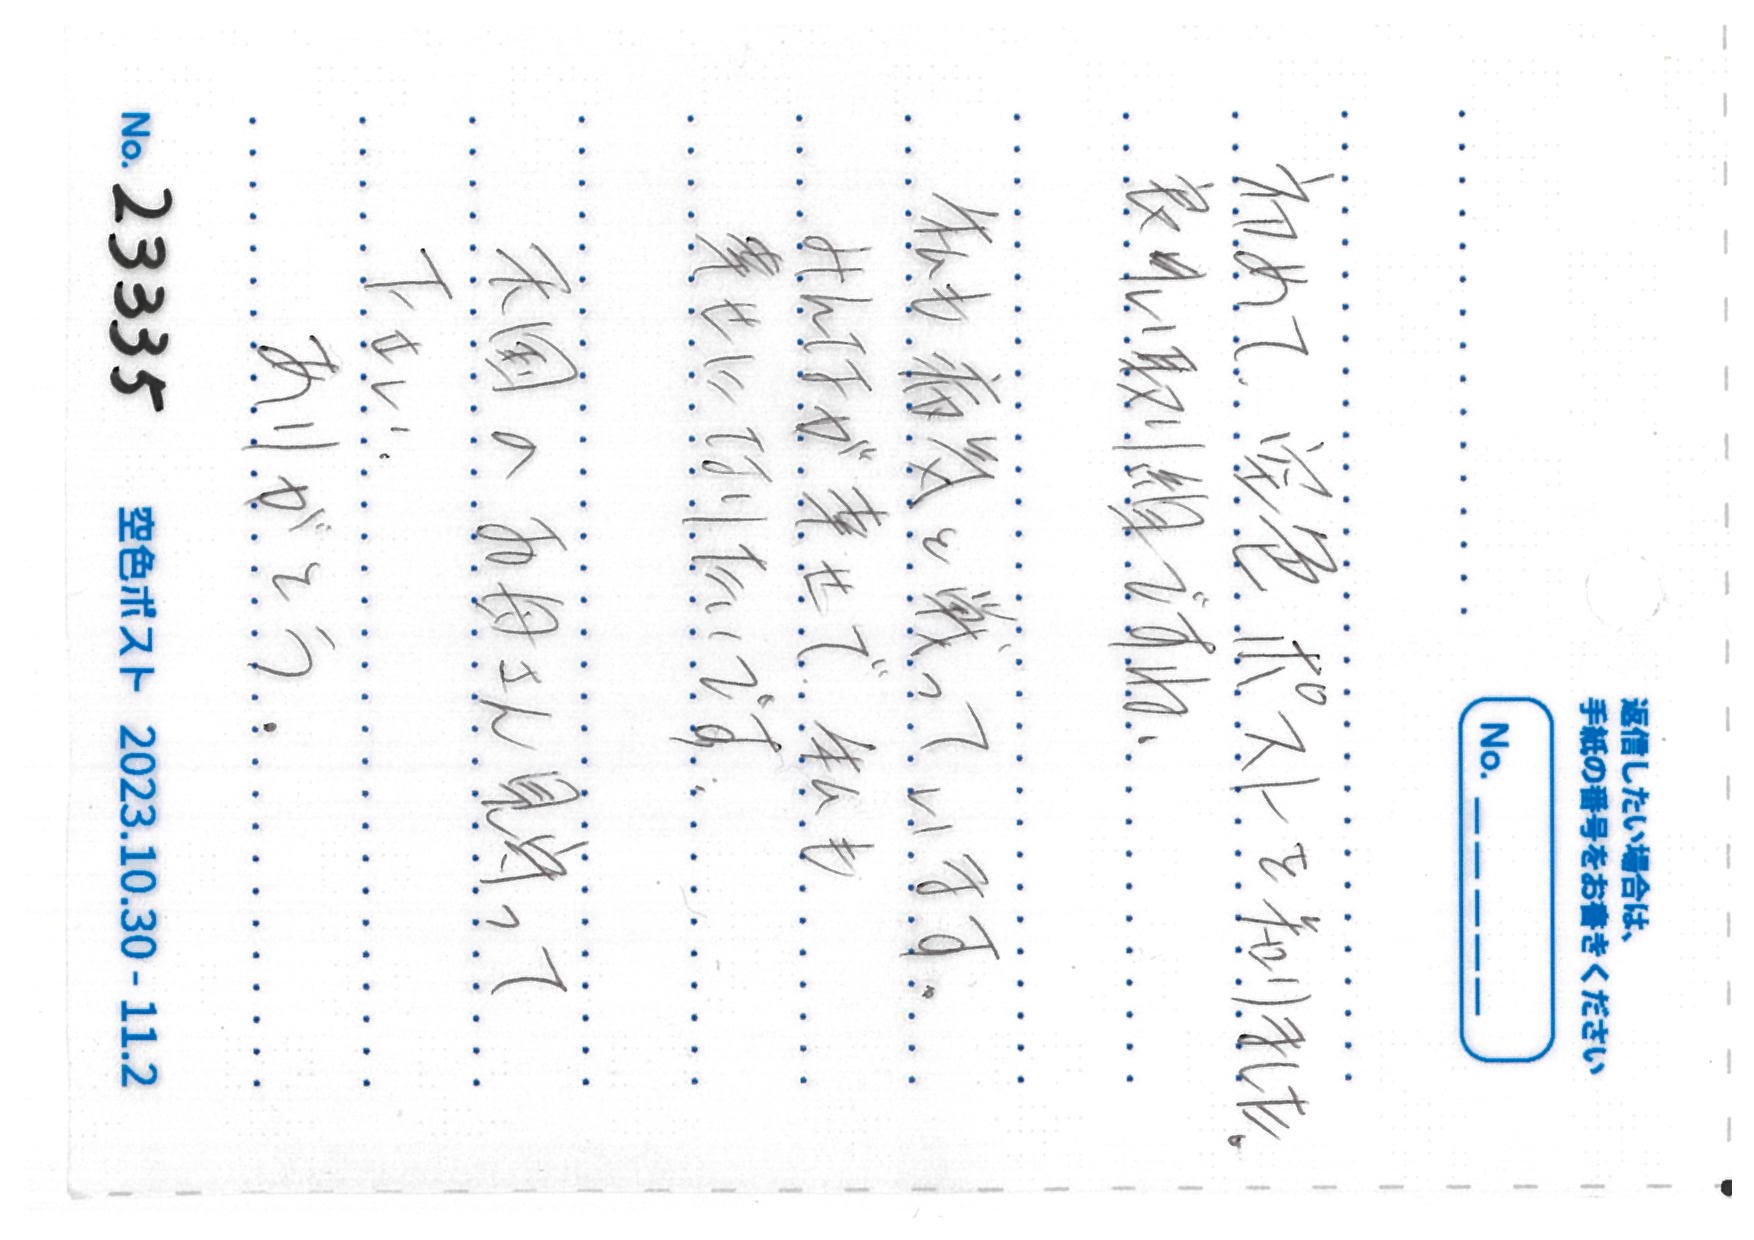 返信したい場合は、
手紙の番号をお書きください
No. _ _ _ _ _
初めて 空色 ポストを知りました。
良い取り組ですね。
私も病気と戦っています。
みんなが幸せで 私も
幸せになりたいです。
天国のお母さん見守って
下さい。
ありがとう.
No. 23335 空色ポスト 2023.10.30 - 11.2